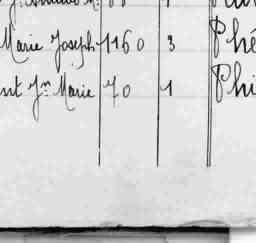 Marie Joseph 1160 3 Phé
nt Jn Marie 70 1 Phi